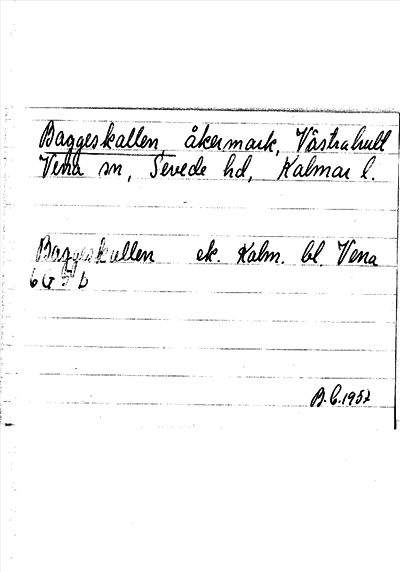 Baggeskallen, åkermark, Västrahult
Vena sn, Sevede hd, Kalmar l.
Baggeskullen ek. Kalm. bl. Vena
6G b
B.C. 1957